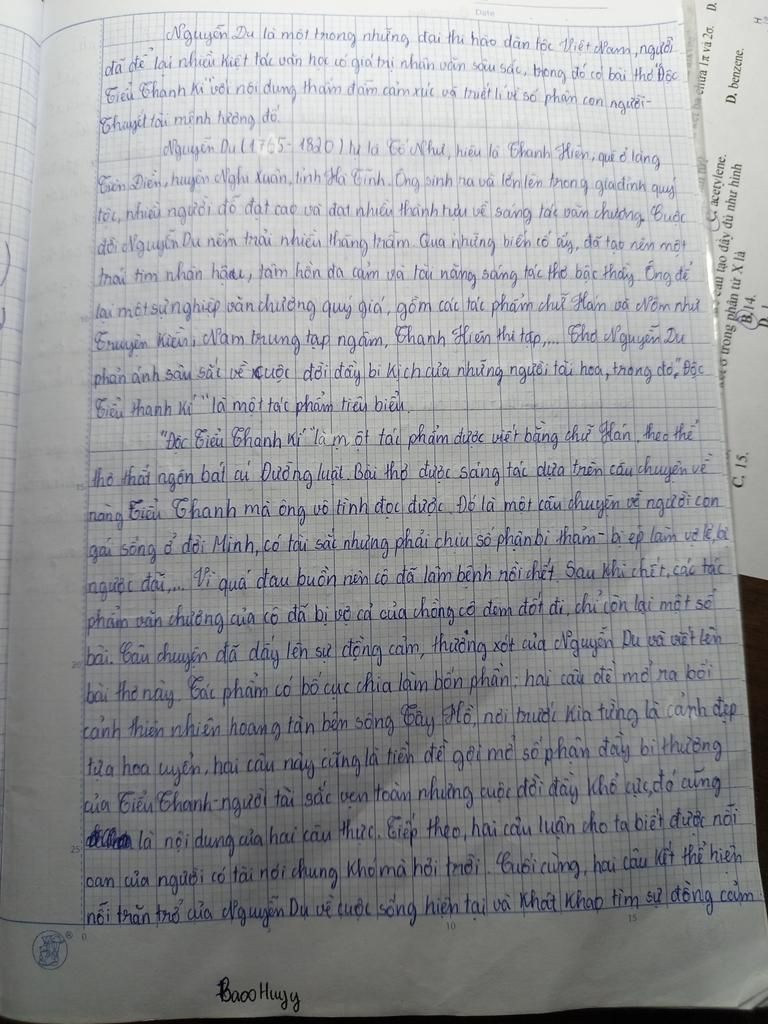 Date
Nguyễn Du là một trong những đại thi hào dân tộc Việt Nam, người
đã để lại nhiều kiệt tác văn học có giá trị nhân văn sâu sắc, trong đó có bài thơ "Độc
Tiểu Thanh Kí" với nội dung thấm đẫm cảm xúc và triết lí về số phận con người-
Thuyết tài mệnh tương đố.
Nguyễn Du (1765-1820) tự là Tố Như, hiệu là Thanh Hiên, quê ở làng
Tiên Điền, huyện Nghi Xuân, tỉnh Hà Tĩnh. Ông sinh ra và lớn lên trong gia đình quý
tộc, nhiều người đỗ đạt cao và đạt nhiều thành tựu về sáng tác văn chương. Cuộc
đời Nguyễn Du nếm trải nhiều thăng trầm. Qua những biến cố ấy, đã tạo nên một
trái tim nhân hậu, tâm hồn đa cảm và tài năng sáng tác thơ bậc thầy. Ông để
lại một sự nghiệp văn chương quý giá, gồm các tác phẩm chữ Hán và Nôm như
Truyện Kiều, Nam trung tạp ngâm, Thanh Hiên thi tập,... Thơ Nguyễn Du
phản ánh sâu sắc về cuộc đời đầy bi kịch của những người tài hoa, trong đó, "Độc
Tiểu thanh kí" là một tác phẩm tiêu biểu.
"Độc Tiểu Thanh Kí" là một tác phẩm được viết bằng chữ Hán, theo thể
thơ thất ngôn bát cú Đường luật. Bài thơ được sáng tác dựa trên câu chuyện về
nàng Tiểu Thanh mà ông vô tình đọc được. Đó là một câu chuyện về người con
gái sống ở đời Minh, có tài sắc nhưng phải chịu số phận bi thảm - bị ép làm vợ lẽ, bị
ngược đãi,... Vì quá đau buồn nên cô đã lâm bệnh rồi chết. Sau khi chết, các tác
phẩm văn chương của cô đã bị vợ cả của chồng cô đem đốt đi, chỉ còn lại một số
bài. Câu chuyện đã dấy lên sự đồng cảm, thương xót của Nguyễn Du và viết lên
bài thơ này. Tác phẩm có bố cục chia làm bốn phần: hai câu đề mở ra bối
cảnh thiên nhiên hoang tàn bên sông Tây Hồ, nơi trước kia từng là cảnh đẹp
tựa hoa uyển, hai câu này cũng là tiền đề gợi mở số phận đầy bi thương
của Tiểu Thanh-người tài sắc vẹn toàn nhưng cuộc đời đầy khổ cực, đó cũng
là nội dung của hai câu thực. Tiếp theo, hai câu luận cho ta biết được nỗi
oan của người có tài nói chung khó mà hỏi trời. Cuối cùng, hai câu kết thể hiện
nỗi trăn trở của Nguyễn Du về cuộc sống hiện tại và khát khao tìm sự đồng cảm
15
20
25
0
10
15
BaooHuyy
chứa 1π và 2σ. D.
D. benzene.
C. acetylene.
cấu tạo đầy đủ như hình
ở trong phân tử X là
B. 14.
C. 15.